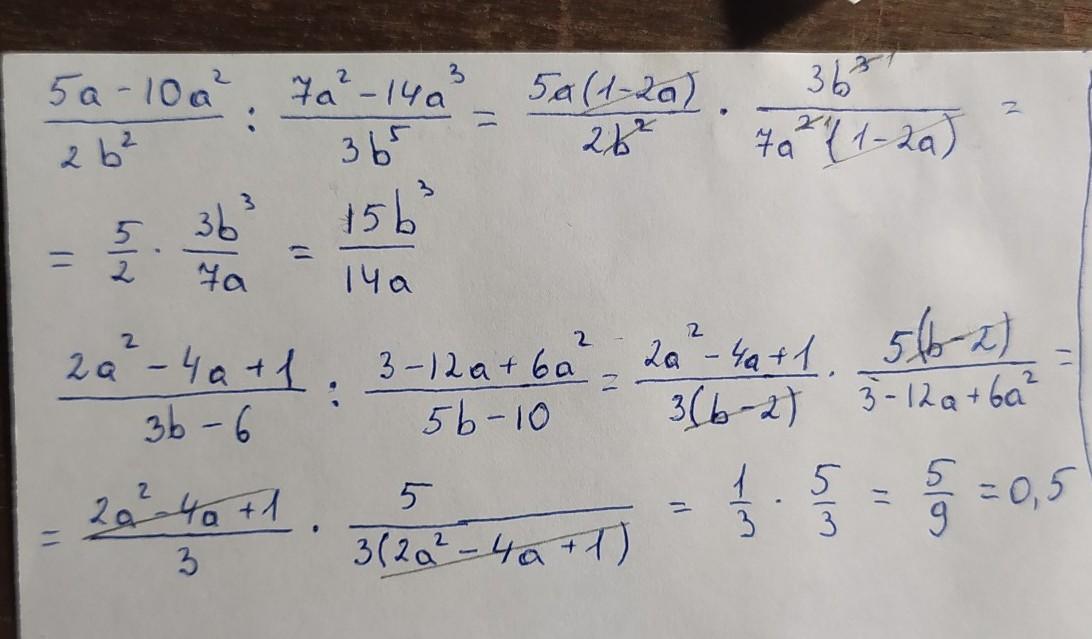 (5a - 10a²)/(2b²) : (7a² - 14a³)/(3b⁵) = (5a(1-2a))/(2b²) · (3b³ ¹)/(7a² ¹(1-2a)) =
= 5/2 · 3b³/7a = 15b³/14a
(2a² - 4a + 1)/(3b - 6) : (3 - 12a + 6a²)/(5b - 10) = (2a² - 4a + 1)/(3(b-2)) · (5(b-2))/(3 - 12a + 6a²) =
= (2a² - 4a + 1)/3 · 5/(3(2a² - 4a + 1)) = 1/3 · 5/3 = 5/9 = 0,5